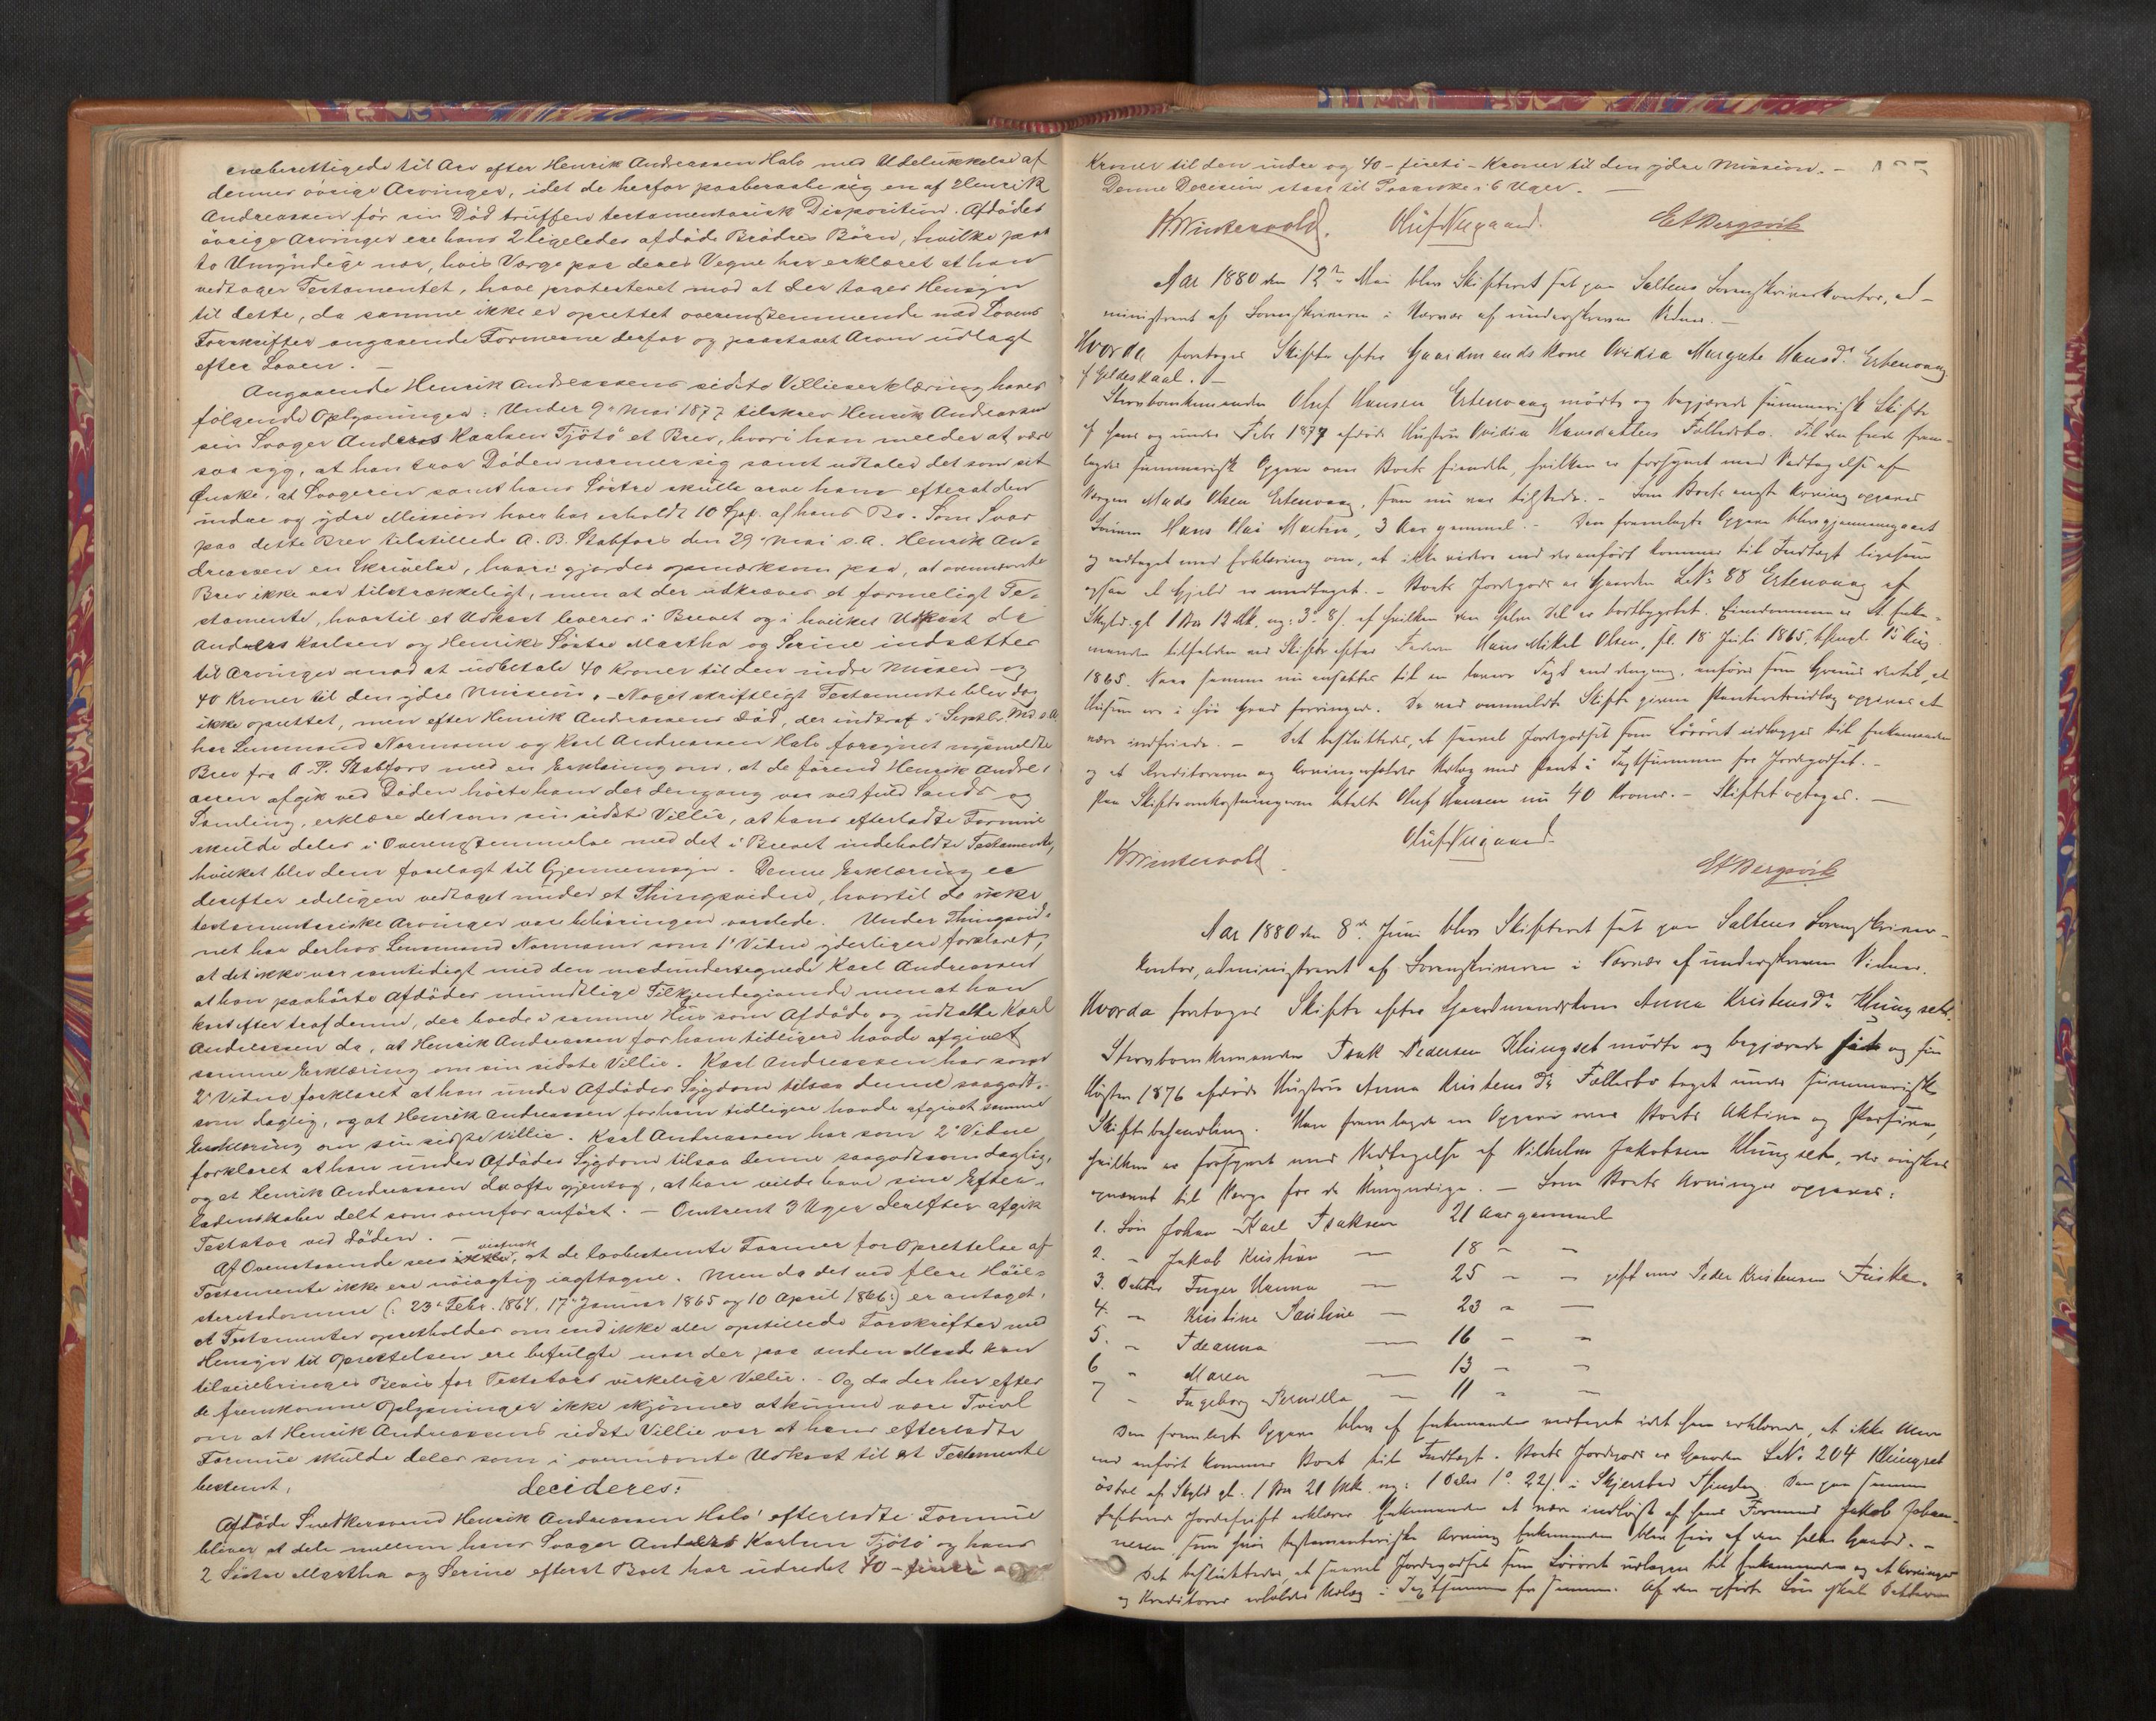 eneberettigede til Arv efter Henrik Andreassen Halo med Udelukkelse af
dennes øvrige Arvinger, idet de herfor paaberaabe sig en af Henrik
Andreassen før sin Død truffen testamentarisk Disposition. Afdødes
øvrige Arvinger ere hans 2 ligeledes afdøde Brødres Børn, hvilke paa
to Umyndige nær, hvis Værge paa deres Vegne har erklæret at han
vedtager Testamentet, have protesteret mod at der tages Hensyn
til dette, da samme ikke er oprettet overensstemmende med Lovens
Forskrifter angaaende Formerne derfor og paastaaet Arven udlagt
efter Loven. —
Angaaende Henrik Andreassens sidste Villieserklæring haves
følgende Oplysninger: Under 9de Mai 1877 tilskrev Henrik Andreassen
sin Svoger Anders Kaalsen Tjötö et Brev, hvori han melder at være
saa syg, at han troer Døden nærmer sig samt udtaler det som sit
Ønske, at Svogeren samt hans Søstre skulle arve ham efterat den
indre og ydre Mission hver har erholdt 10 Spd. af hans Bo. Som Svar
paa dette Brev tilstillede A. B. Stabfors den 29de Mai s. A. Henrik An-
dreassen en Skrivelse, hvori gjordes opmærksom paa, at ovennævnte
Brev ikke var tilstrækkeligt, men at der udkræves et formeligt Te-
stamente, hvortil et Udkast leveres i Brevet og i hvilket Udkast de
Anders Karlsen og Henriks Søstre Martha og Serine indsætter
til Arvinger mod at udbetale 40 Kroner til den indre Mission og
40 Kroner til den ydre Mission. – Noget skriftligt Testamente blev dog
ikke oprettet, men efter Henrik Andreassens Død, der indtraf i Septbr. Md. s. A.
har Lensmand Normann og Karl Andreassen Halo forsynet nysmeldte
Brev fra A. B. Stabfors med en Erklæring om, at de førend Henrik Andre-
assen afgik ved Døden hørte ham der dengang var ved fuld Sands og
Samling, erklære det som sin sidste Villie, at hans efterladte Formue
skulde deles i Overensstemmelse med det i Brevet indeholdte Testamente,
hvilket blev dem forelagt til Gjennemsyn. Denne Erklæring er
derefter edeligen vedtaget under et Thingsvidne, hvortil de ikke
testamentariske Arvinger vare behørigen varslede. Under Thingsvid-
net har derhos Lensmand Normann som 1ste Vidne yderligere forklaret,
at det ikke var samtidigt med den medundertegnede Karl Andreassen
at han paahørte Afdødes mundtlige Tilkjendegivende men at han
kort efter traf denne, der boede i samme Hus som Afdøde og udtalte Karl
Andreassen da, at Henrik Andreassen for ham tidligere havde afgivet
samme Erklæring om sin sidste Villie. Karl Andreassen har som
2det Vidne forklaret at han under Afdødes Sygdom tilsaa denne saagodt-
som daglig, og at Henrik Andreassen for ham tidligere havde afgivet samme
Erklæring om sin sidste Villie. Karl Andreassen har som 2det Vidne
forklaret at han under Afdødes Sygdom tilsaa denne saagodtsom daglig,
og at Henrik Andreassen da ofte gjentog, at han vilde have sine Efter-
ladenskaber delt som ovenfor anført. – Omtrent 3 Uger derefter afgik
Testator ved Døden. —
Af Ovenstaaende sees at de lovbestemte Former for Oprettelse af
Testamente ikke ere nøiagtig iagttagne. Men da det ved flere Høie-
steretsdomme (: 23de Febr. 1864, 17de Januar 1865 og 10 April 1866:) er antaget,
at Testamenter opretholdes om end ikke alle opstillede Forskrifter med
Hensyn til Oprettelsen ere befulgte naar der paa anden Maade kan
tilveiebringes Bevis for Testators virkelige Villie. – Og da der her efter
de fremkomne Oplysninger ikke skjønnes at kunne være Tvivl
om at Henrik Andreassens sidste Villie var at hans efterladte
Formue skulde deles som i ovennævnte Udkast til et Testamente
bestemt,
decideres:
Afdøde Snedkersvend Henrik Andreassen Halo's efterladte Formue
bliver at dele mellem hans Svoger Anders Karlsen Tjötö og hans
2 Søstre Martha og Serine efterat Boet har udredet 40 – fireti –
Kroner til den indre og 40 – fireti – Kroner til den ydre Mission. –
Denne Decision staar til Paaanke i 6 Uger. —
H Wintervold. Oluf Nygaard. E A Bergsvik
Aar 1880 den 12te Mai blev Skifteret sat paa Saltens Sorenskriverkontor, ad-
ministreret af Sorenskriveren i Nærvær af underskrevne Vidner. —
Hvorda foretoges Skifte efter Gaardmandskone Ovidia Margrete Hansdr. Ertenvaag
f Gildeskaal. —
Stervboenkemanden Oluf Hansen Ertenvaag mødte og begjærede summarisk Skifte
af hans og under Febr 1877 afdøde Hustru Ovidia Hansdatters Fællesbo. Til den Ende frem-
lagdes summarisk Opgave over Boets Eiendele, hvilken er forsynet med Vedtagelse af
Værgen Mads Olsen Ertenvaag, som nu var tilstede. – Som Boets eneste Arving opgaves
Sønnen Hans Olai Martin, 3 Aar gammel. – Den fremlagte Opgave blev gjennemgaaet
og vedtaget med Erklæring om, at ikke videre end der anført kommer til Indtægt ligesom
ogsaa al Gjeld er medtaget. – Boets Jordegods er Gaarden L.No 88 Ertenvaag af
Skyld gl. 1 Vog 12 Mk. ny: 3. 8 s. af hvilken den halve Del er bortbygslet. Eiendommen er Enke-
manden tilfalden ved Skifte efter Faderen Hans Mikal Olsen, sl. 18 Juli 1865, thinglæst 15 Aug
1865. Naar samme nu ansættes til en lavere Taxt end dengang, anføres som Grund dertil, at
Husene ere i høi Grad forringede. De ved ommeldte Skifte givne Panteudlæg opgives at
være indfriede. – Det besluttedes, at saavel Jordegodset som Løsøret udlægges til Enkemanden
og at Kreditorerne og Arvingen erholder Udlæg med Pant i Taxtsummen for Jordegodset. –
Paa Skifteomkostningerne betalte Oluf Hansen nu 40 Kroner. – Skiftet optages. —
H Wintervold. Oluf Nygaard. E A Bergsvik
Aar 1880 den 8de Juni blev Skifteret sat paa Saltens Sorenskriver-
kontor, administreret af Sorenskriveren i Nærvær af underskrevne Vidner.
Hvorda foretoges Skifte efter Gaardmandskone Anna Kristensdr. Klungset.
Stervboenkemanden Isak Pedersen Klungset mødte og begjærede sit og sin
Høsten 1876 afdøde Hustru Anna Kristensdrs Fællesbo taget under summarisk
Skiftebehandling. Han fremlagde en Opgave over Boets Aktiva og Passiva,
hvilken er forsynet med Vedtagelse af Vilhelm Jakobsen Klungset, der ønskes
opnævnt til Værge for de Umyndige. – Som Boets Arvinger opgaves:
1. Søn Johan Karl Isaksen 21 Aar gammel
2. – Jakob Kristian — 18 – –
3. Datter Inger Hanna — 25 – – gift med Peder Kristensen Fuske.
4. – Kristine Pauline — 23 – —
5. – Ideanna — 16 – –
6 – Maren — 13 – –
7 – Ingeborg Pernilla — 11 – —
Den fremlagte Opgave blev af Enkemanden vedtaget idet han erklærede, at ikke Mere
end anført kommer Boet til Indtægt. Boets Jordegods er Gaarden L.No. 204 Klungset
østre af Skyld gl. 1 Vog 21 Mk. ny: 1 Daler 1 22 s. i Skjerstad Thinglag. Den paa samme
heftende erklærer Enkemanden at være indløst af hans Formand Jakob Johan-
nesen som hvis testamentariske Arving Enkemanden blev Eier af den hele Gaard. –
Det besluttedes, at saavel Jordegodset som Løsøret udlægges til Enkemanden og at Arvinger
og Kreditorer erholder Udlæg i Taxtsummen for samme. Af den opførte Løs skal Datteren